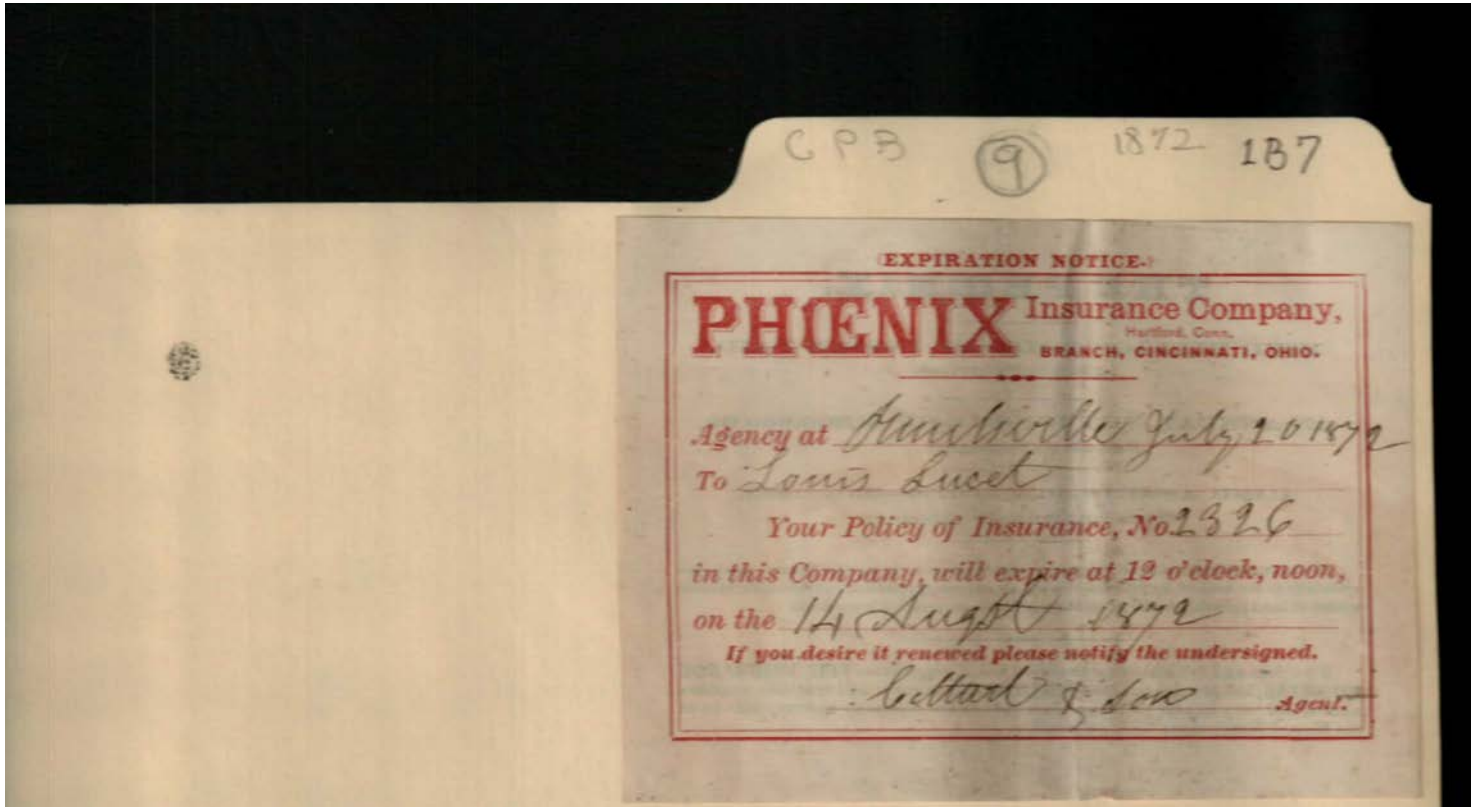 CPB 9 1872 1B7
(EXPIRATION NOTICE.)
PHŒNIX Insurance Company,
Hartford, Conn.
BRANCH, CINCINNATI, OHIO.
Agency at Huntsville July 20 1872
To Louis Lucet
Your Policy of Insurance, No. 2326
in this Company, will expire at 12 o'clock, noon,
on the 14 Augst 1872
If you desire it renewed please notify the undersigned.
& Son Agent.